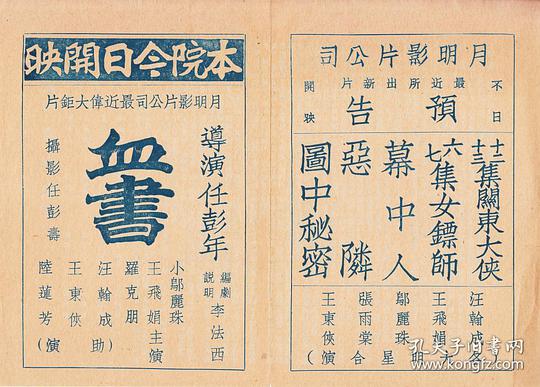 月明影片公司
最近所出新片
不日
預告
開映
十二
十三集關東大俠
六
七集女鏢師
幕中人
惡隣
圖中秘密
汪翰成
王飛娟
鄔麗珠明星
張雨棠合
王東俠演)
本院今日開映
月明影片公司最近偉大鉅片
導演任彭年
血書
攝影任彭壽
編劇
說明
李法西
小鄔麗珠
王飛娟主演
羅克朋
汪翰成助
王東俠
陸蓮芳(演
孔夫子旧书网